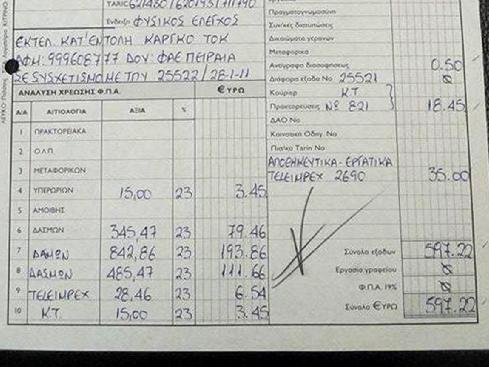 TARIC 621430/6201931/111790
Ένδειξη ΦΥΣΙΚΟΣ ΕΛΕΓΧΟΣ
ΕΚΤΕΛ. ΚΑΤ'ΕΝΤΟΛΗ ΚΑΡΓΚΟ ΤΟΚ
ΑΦΜ:999608777 ΔΟΥ ΦΑΕ ΠΕΙΡΑΙΑ
ΑΝΑΛΥΣΗ ΧΡΕΩΣΗΣ Φ.Π.Α. €ΥΡΩ
Α/Α ΑΙΤΙΟΛΟΓΙΑ ΑΞΙΑ %
1 ΠΡΑΚΤΟΡΕΙΑΚΑ
2 Ο.Λ.Π
3 ΜΕΤΑΦΟΡΙΚΩΝ
4 ΥΠΕΡΩΡΙΩΝ 15,00 23 3.45
5 ΑΜΟΙΒΗΣ
6 ΔΑΣΜΩΝ 345,47 23 79.46
7 842,86 23 193.86
8 ΔΑΣΜΩΝ 485,47 23 111.66
9 TELEIMPEX 28,46 23 6.54
10 Κ.Τ. 15,00 23 3.45
Πραγματογνωμοσύνη
Συν/κές διατυπώσεις
Δικαιώματα γεφανών
Μεταφορικά
Ανάγραφα διασαφήσεως 0.50
Διάφορα έξοδα Νο 25521
Κούριερ Κ.Τ
Πρακτορεύσεις Νο 821 18.45
ΔΑΟ Νο
Κοινοτική Οδηγ. Νο
Πισ/κο Tarin Νο
ΑΠΟΘΗΚΕΥΤΙΚΑ-ΕΡΓΑΤΙΚΑ
TELEIMPEX 2690 35.00
Σύνολο εξόδων 597.22
Εργασία γραφείου
Φ.Π.Α. 19%
Σύνολο €ΥΡΩ 597.22